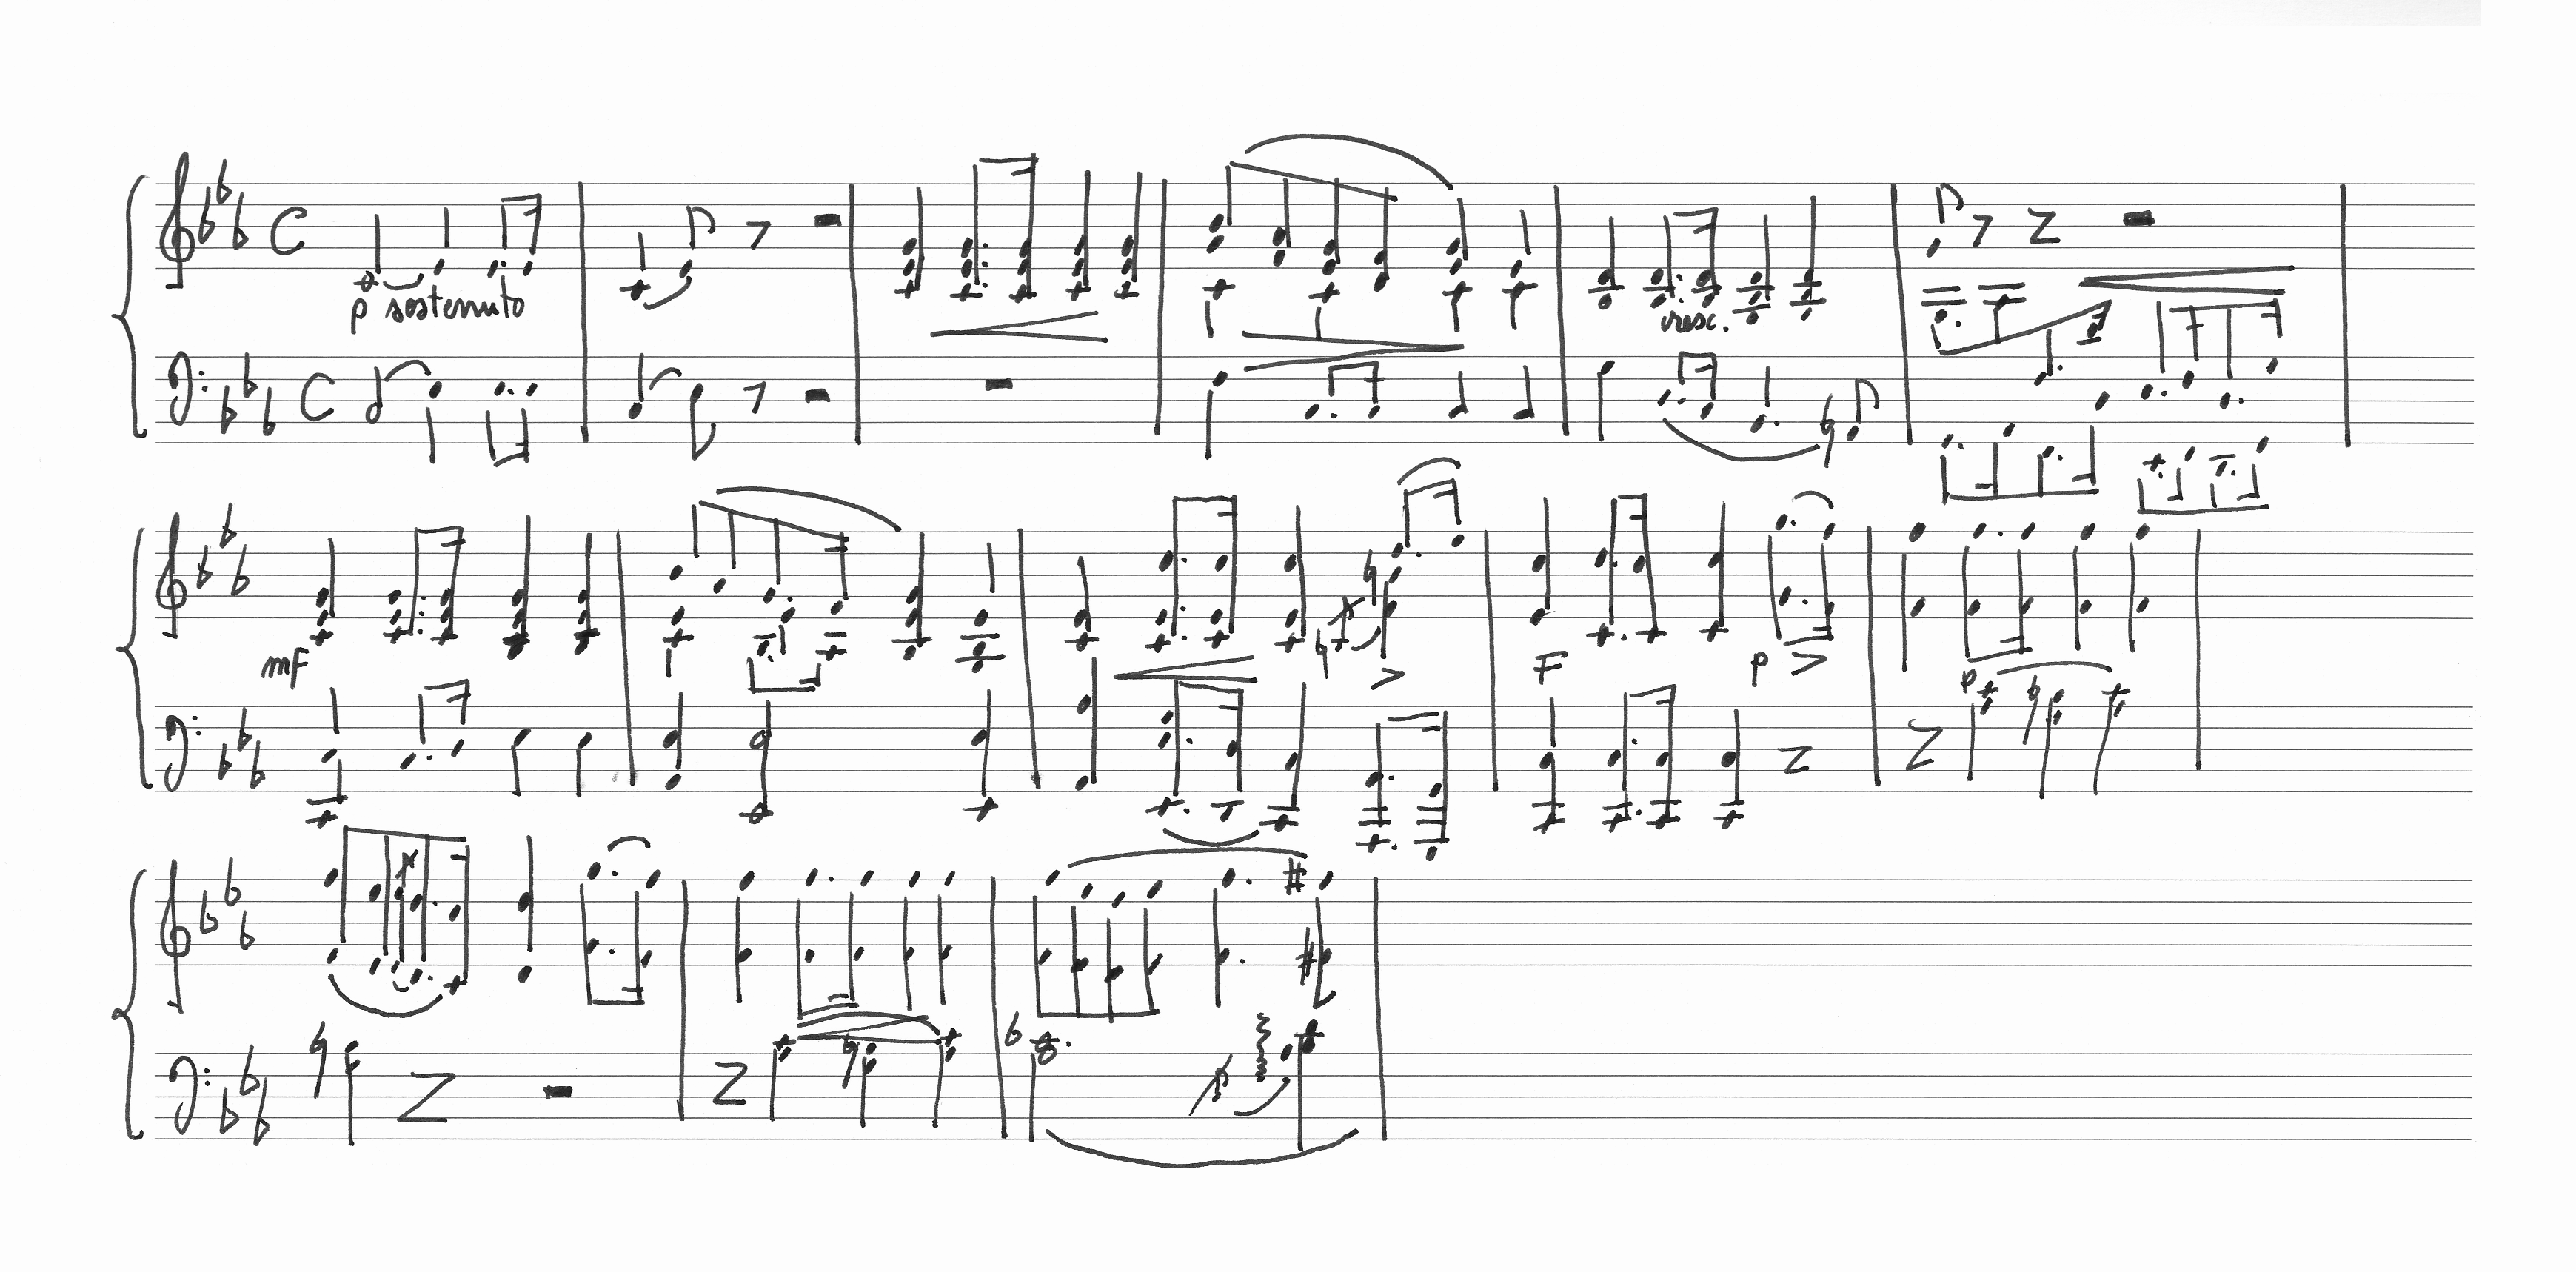 p sostenuto
cresc.
mF
F p
p